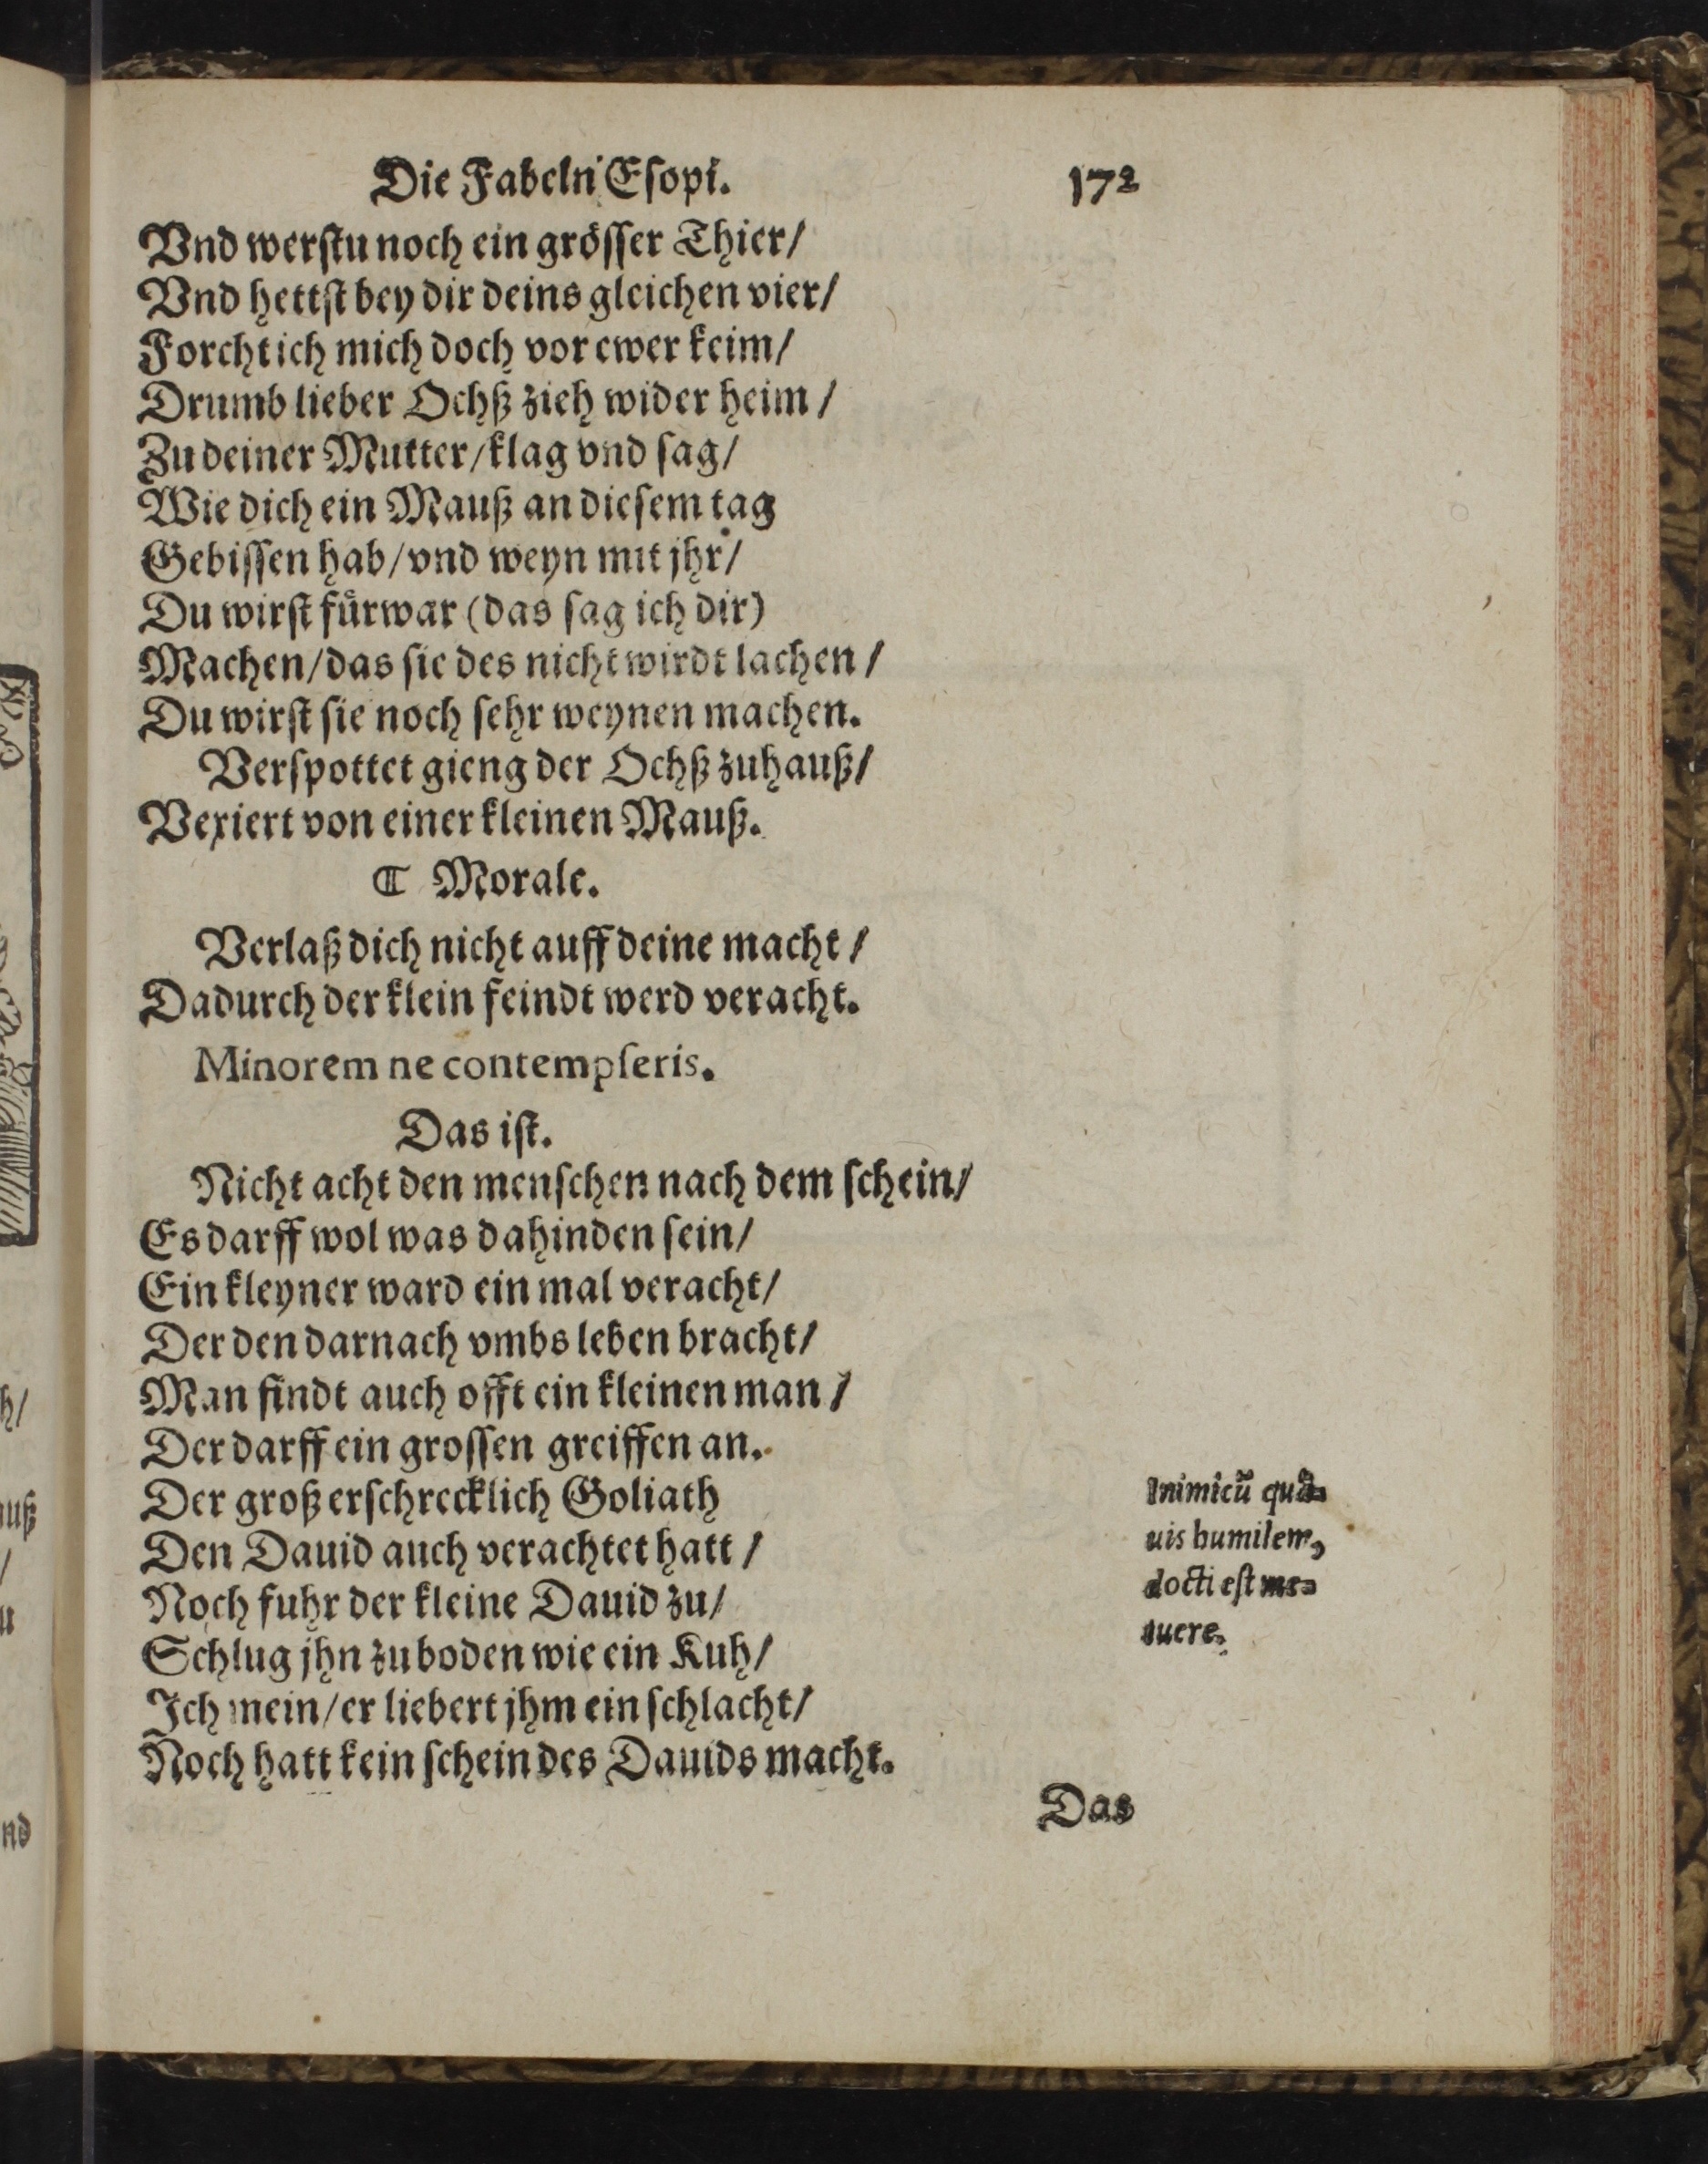 Die Fabeln Eſopi. 172
Vnd werſtu noch ein gröſſer Thier/
Vnd hettſt bey dir deins gleichen vier/
Forcht ich mich doch vor ewer keim/
Drumb lieber Ochß zieh wider heim/
Zu deiner Mutter/klag vnd ſag/
Wie dich ein Mauß an dieſem tag
Gebiſſen hab/vnd weyn mit jhr/
Du wirſt fürwar (das ſag ich dir)
Machen/das ſie des nicht wirdt lachen/
Du wirſt ſie noch ſehr weynen machen.
Verſpottet gieng der Ochß zuhauß/
Vexiert von einer kleinen Mauß.
ℂ Morale.
Verlaß dich nicht auff deine macht/
Dadurch der klein feindt werd veracht.
Minorem ne contempſeris.
Das iſt.
Nicht acht den menſchen nach dem ſchein/
Es darff wol was dahinden ſein/
Ein kleyner ward ein mal veracht/
Der den darnach vmbs leben bracht/
Man findt auch offt ein kleinen man/
Der darff ein groſſen greiffen an.
Der groß erſchrecklich Goliath
Den Dauid auch verachtet hatt/
Noch fuhr der kleine Dauid zu/
Schlug jhn zu boden wie ein Kuh/
Ich mein/er liebert jhm ein ſchlacht/
Noch hatt kein ſchein des Dauids macht.
Inimicũ quã-
uis humilem,
docti eſt me-
tuere.
Das